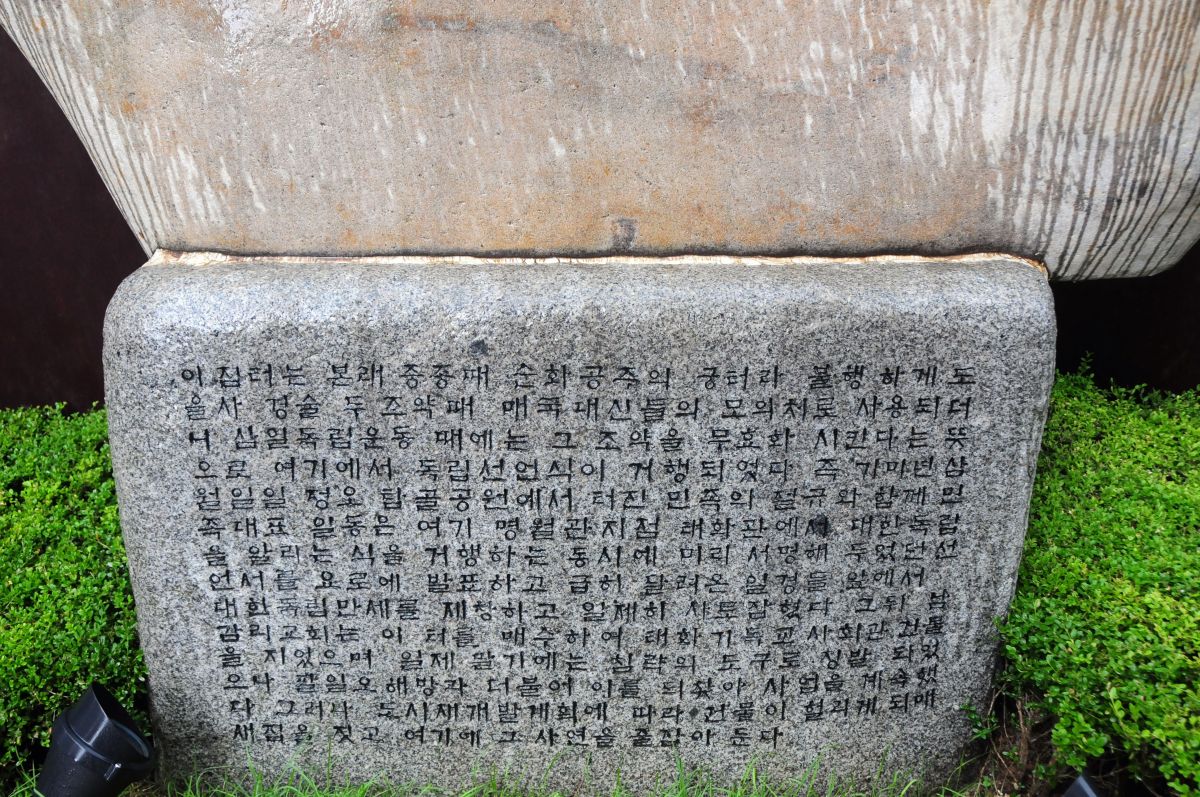 이 집터는 본래 중종때 순화공주의 궁터라 불행하게도
을사 경술 두 조약때 매국대신들의 모의처로 사용되더
니 삼일독립운동 때에는 그 조약을 무효화 시킨다는 뜻
으로 여기에서 독립선언식이 거행되었다 즉 기미년 삼
월일일 정오 탑골공원에서 터진 민족의 절규와 함께 민
족대표 일동은 여기 명월관지점 태화관에서 대한독립
을 알리는 식을 거행하는 동시에 미리 서명해 두었던 선
언서를 요로에 발표하고 급히 달려온 일경들 앞에서
대한독립만세를 제창하고 일제히 사로잡혔다 그뒤 남
감리교회는 이 터를 매수하여 태화기독교 사회관 건물
을 지었으며 일제 말기에는 침략의 도구로 징발 되었
으나 팔일오해방과 더불어 이를 되찾아 사업을 계속했
다 그러나 도시재개발계획에 따라 건물이 헐리게 되매
새집을 짓고 여기에 그 사연을 줄잡아 둔다